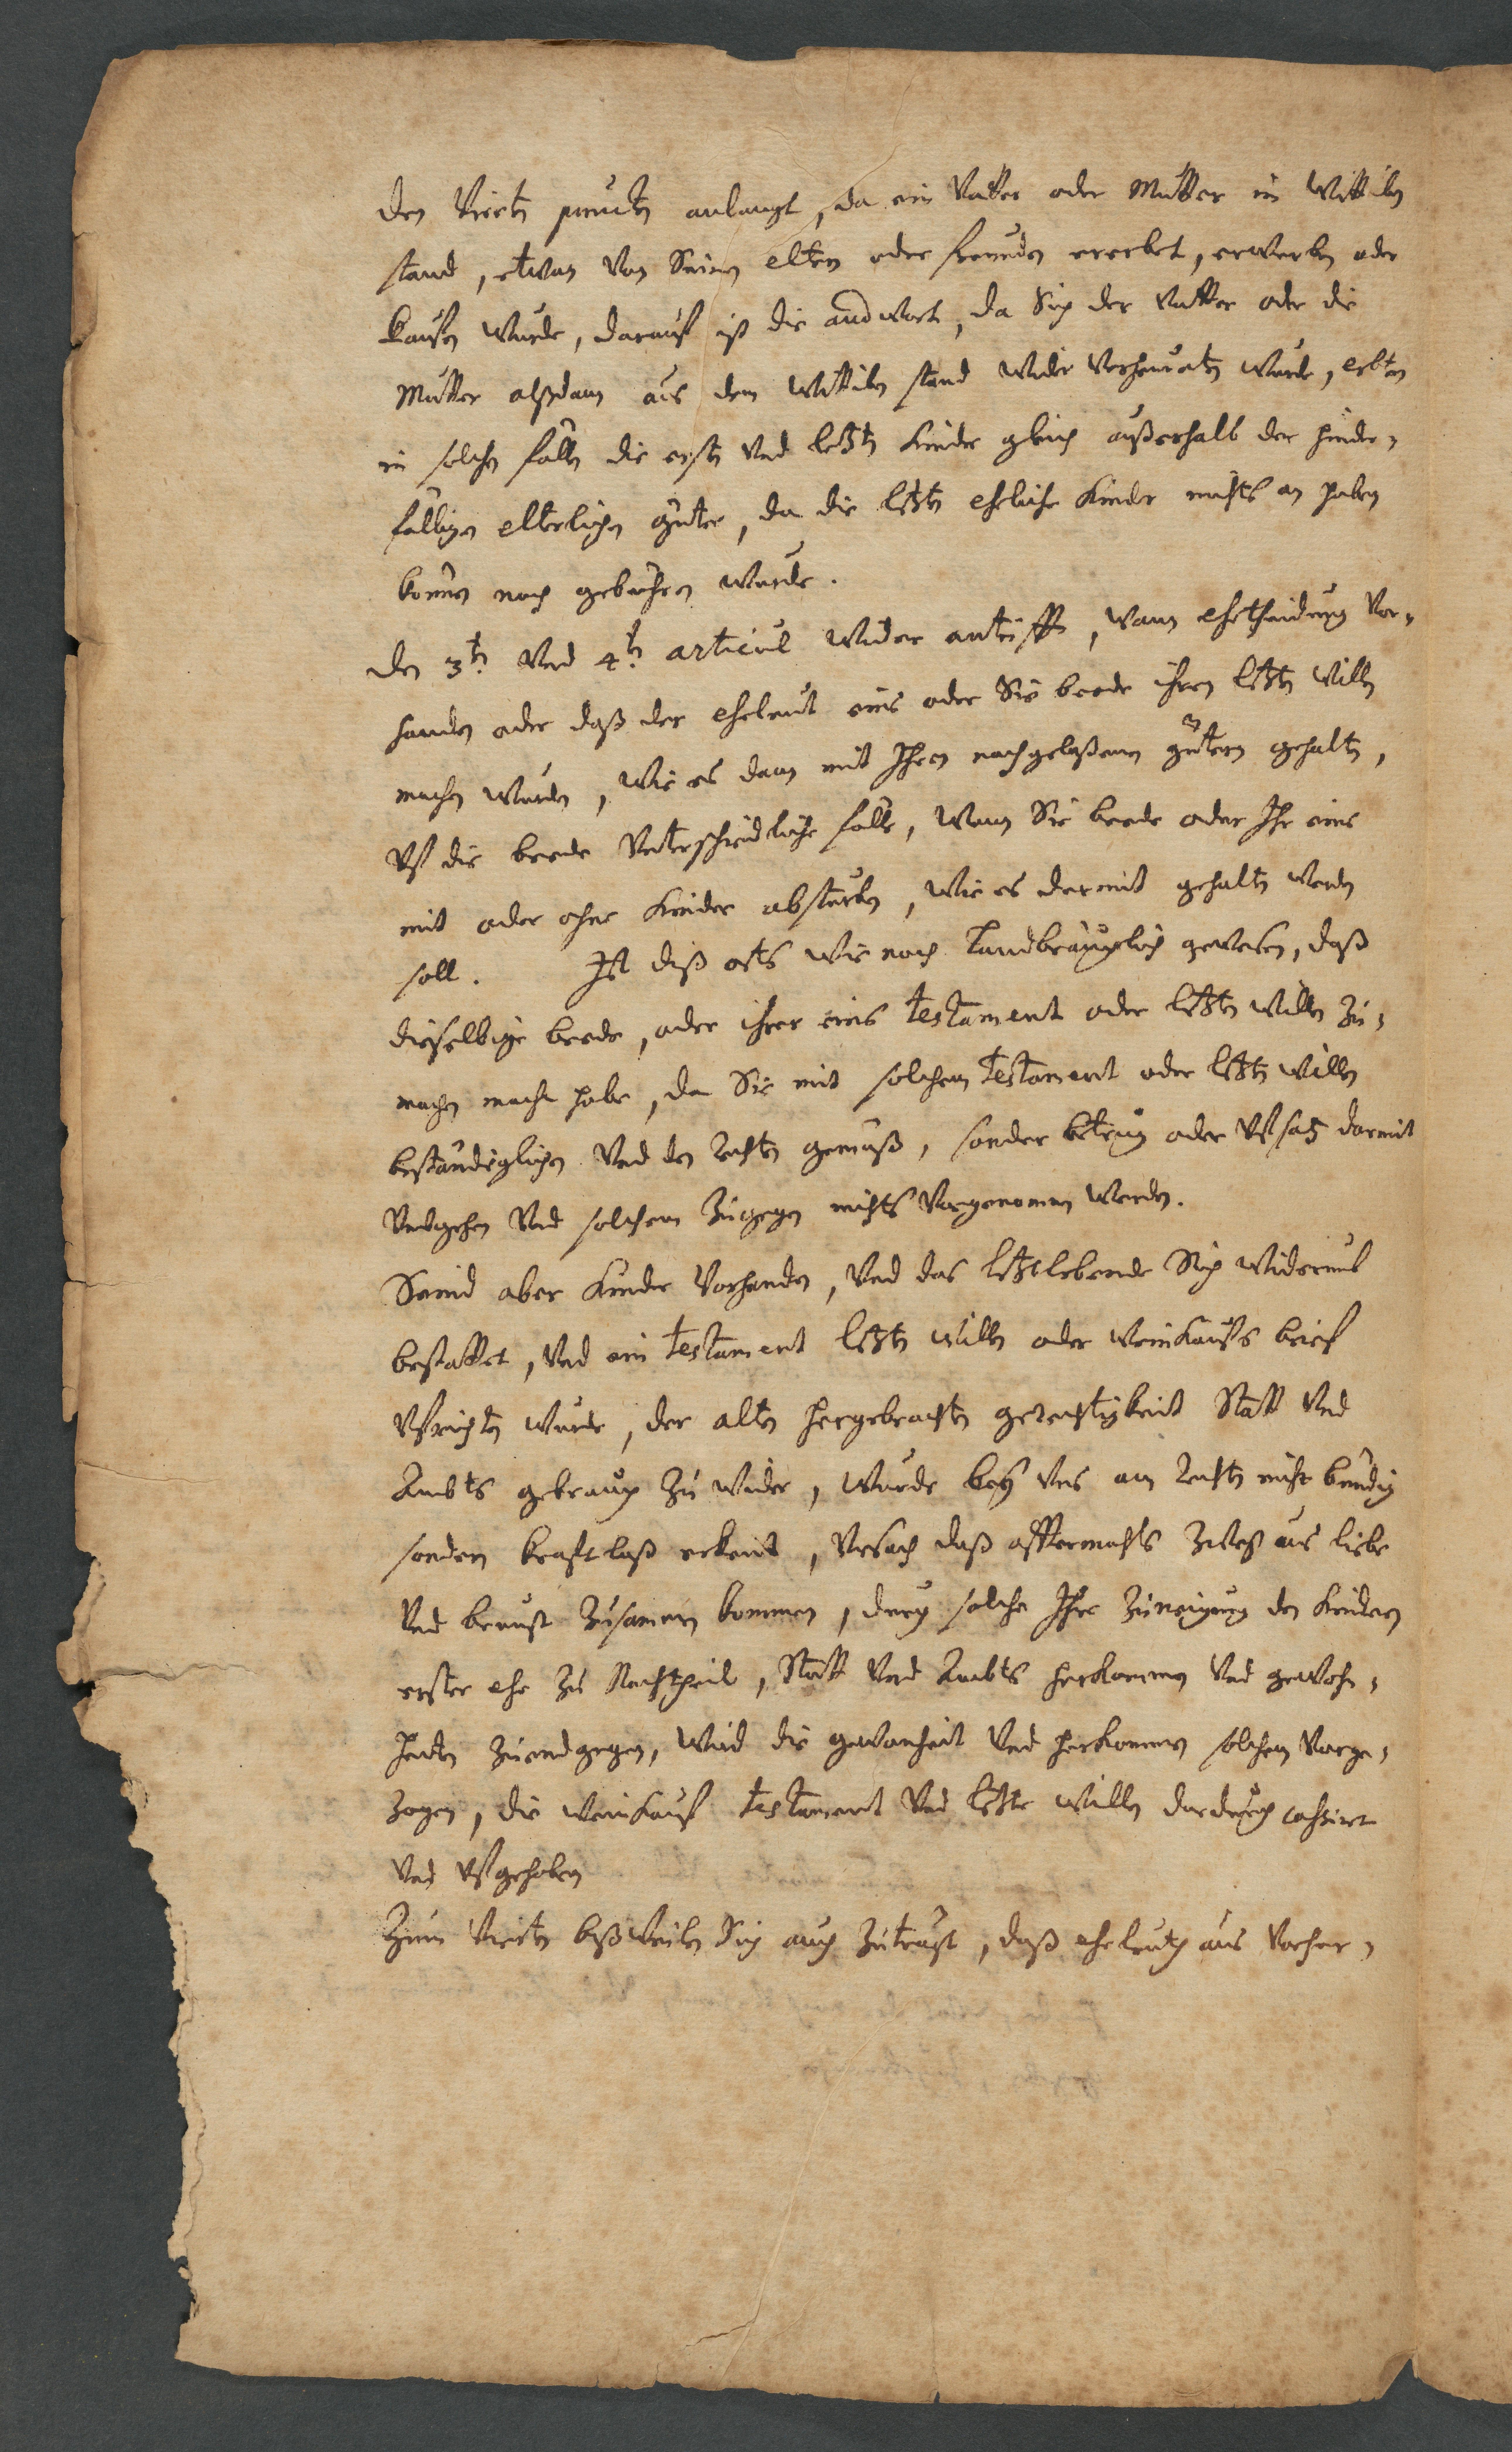 den Vierten puncten anlangt, da ein Vatter oder Mutter in Wittiben
stand, etwan von Seinen eltern oder freunden ererbet, erwerben oder
kaufen wurde, darauf ist die andwort, da Sich der Vatter oder die
Mutter alßdann aus dem Wittiben stand wider verheuraten wurde, erbten
in solchen fällen die ersten und letzten kinder gleich außerhalb der hinder-
fälligen elterlichen güter, da die letzten eheliche kinder nichts an haben
konnen noch gebühren wurde.
den 3t. und 4t. articul wider antrifft, wann ehetheidung vor-
handen oder daß der eheleut eins oder Sie beede ihren letzten willen
machen wurden, wie es dann mit Ihren nachgelaßenen gütern gehalten,
Uf die beede Unterschidtliche fälle, wann Sie beede oder Ihr eins
mit oder ohne kinder absturben, wie es dermit gehalten werden
soll. Ist diß orts wie noch Landbräuchlich gewesen, daß
dieselbige beede, oder ihrer eins testament oder letzten willen zu-
machen macht habe, da Sie mit solchem testament oder letzten willen
beständiglichen und den rechten gemäß, sonder betrug oder Ufsatz darmit
umbgehen und solchem zugegen nichts vorgenommen werden.
Seind aber kinder vorhanden, und das letztlebende Sich widerumb
bestattet, und ein testament letzten willen oder weinkaufs brief
Ufrichten wurde, der alten hergebrachten gerechtigkeit Statt und
Ambts gebrauch zu wider, wurde bey uns am rechten nicht bündig
sondern kraftloß erkent, Ursach daß offtermahls zwey aus liebe
und brunst zusamen kommen, durch solche Ihre zuneigung den kindern
erster ehe zu Nachtheil, Statt und Ambts herkommen und gewohn-
heiten zuendgegen, wird die gewonheit und herkommen solchem vorge-
zogen, die weinkauf testament und letzte willen dardurch cassirt
und Ufgehoben
Zum Vierten bißweilen Sich auch zuträgt, daß eheleuth aus vorher-